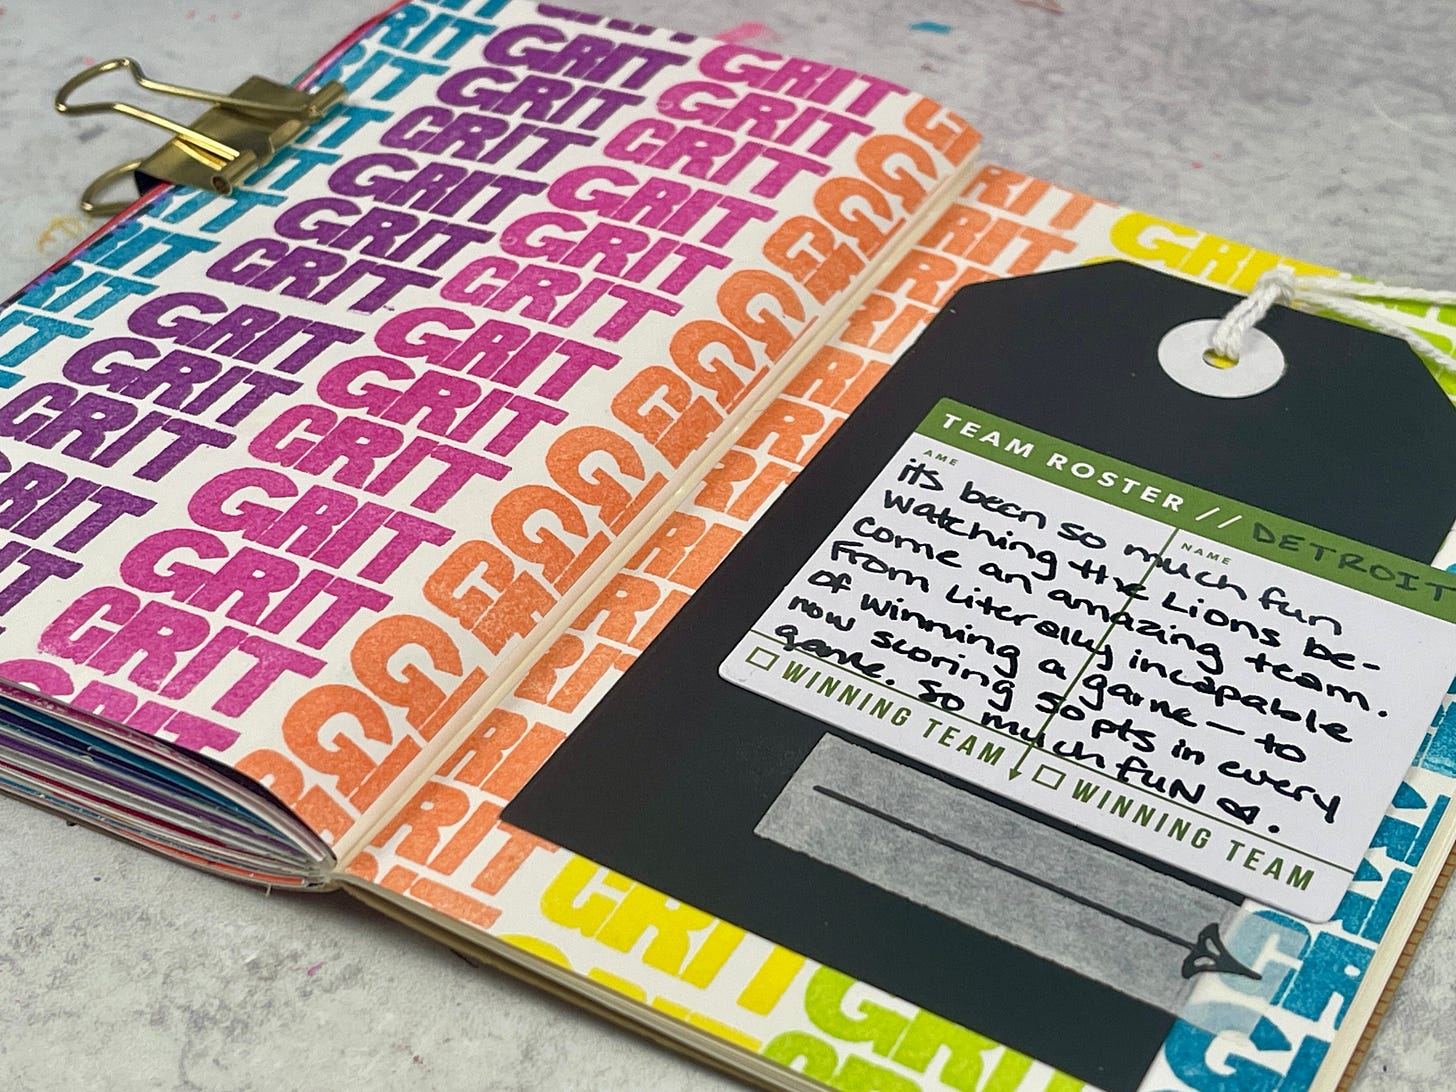 GRIT GRIT
GRIT GRIT
GRIT GRIT
GRIT GRIT
GRIT GRIT
GRIT GRIT
GRIT GRIT
GRIT GRIT
GRIT GRIT
GRIT GRIT
GRIT GRIT
GRIT
GRIT
GRIT
TEAM ROSTER // DETROIT
NAME
its been so much fun
watching the Lions be-
come an amazing team.
From literally incapable
of winning a game — to
now scoring 50pts in every
game. So much fun.
WINNING TEAM
WINNING TEAM
GRIT
GRIT